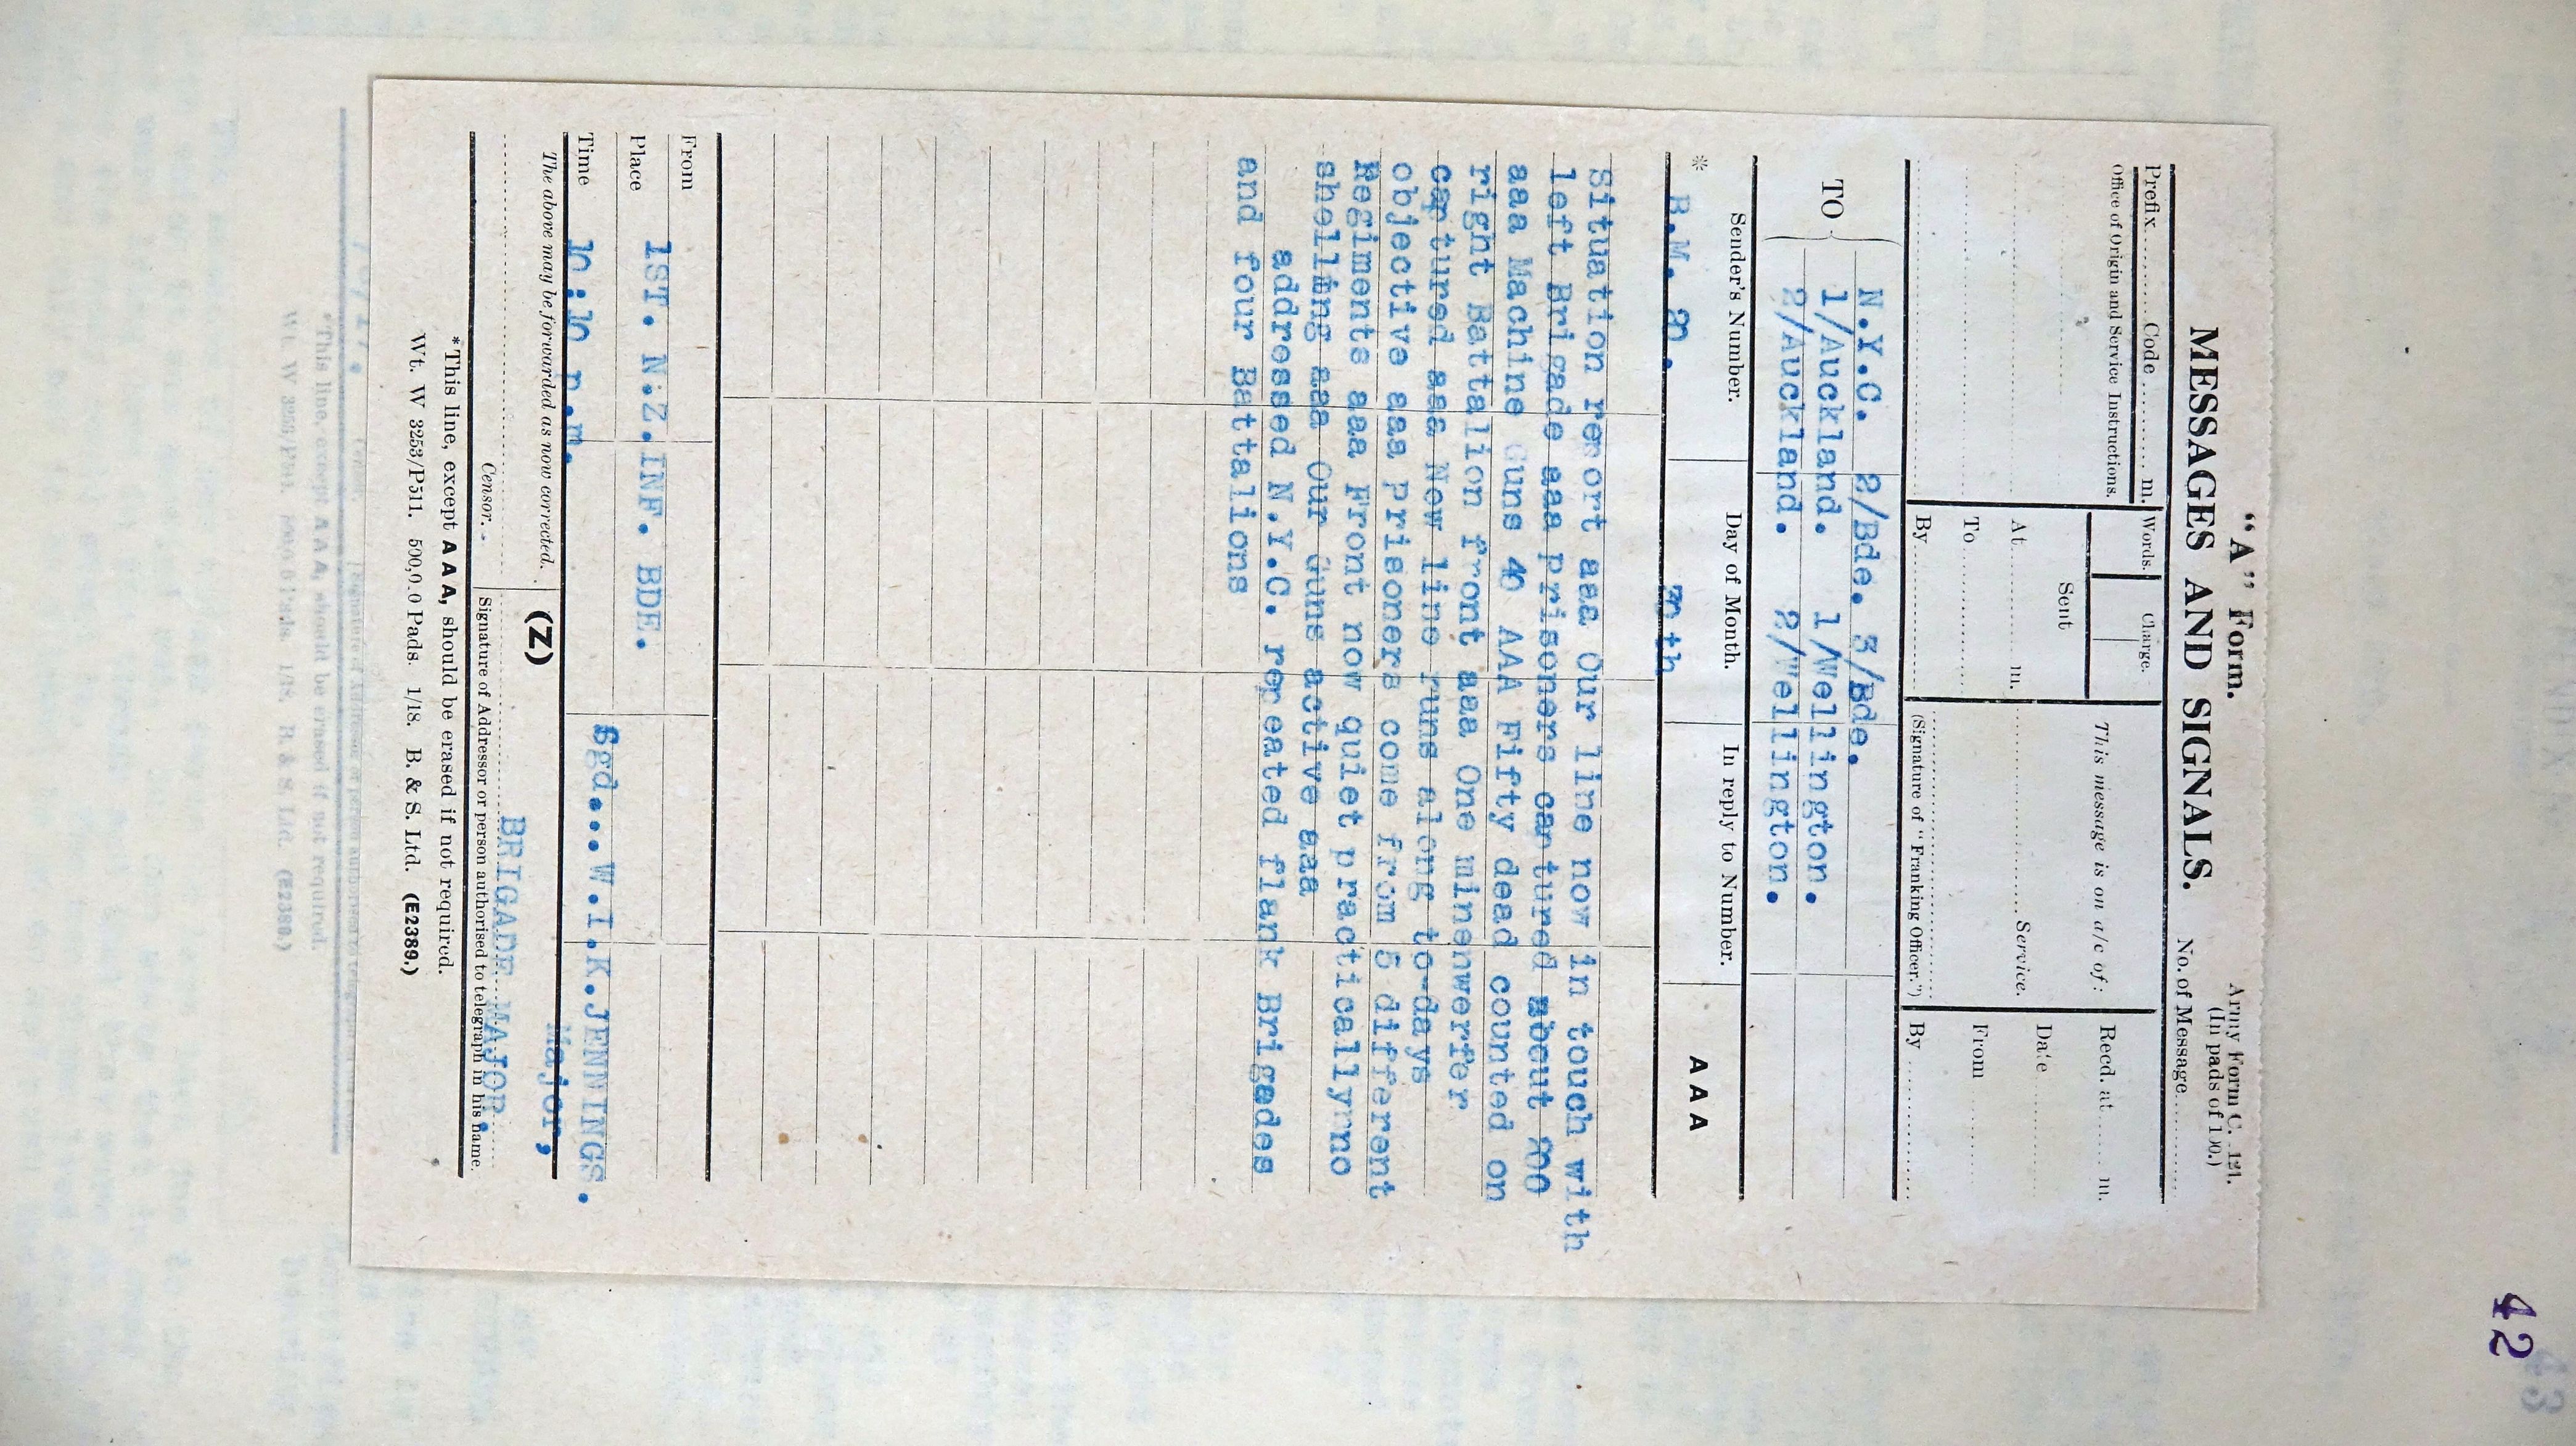 "A" Form.
Army Form C. 121.
(In pads of 100.)
MESSAGES AND SIGNALS.
No. of Message
Prefix Code m.
Office of Origin and Service Instructions.
Words.
Charge.
Sent
At m.
To
By
This message is on a/c of:
Service.
(Signature of "Franking Officer.")
Recd. at m.
Date
From
By
TO
N.Y.C. 2/Bde. 3/Bde.
1/Auckland. 1/Wellington.
2/Auckland. 2/Wellington.
Sender's Number.
Day of Month.
In reply to Number.
A A A
* B.M. 20. 30th
Situation report aaa Our line now in touch with
left Brigade aaa prisoners captured about 200
aaa Machine Guns 40 AAA Fifty dead counted on
right Battalion front aaa One minenwerfer
captured aaa New line runs along to-days
objective aaa Prisoners come from 5 different
Regiments aaa Front now quiet practically no
shelling aaa Our guns active aaa
addressed N.Y.C. repeated flank Brigades
and four Battalions
From
Place 1ST. N.Z.INF. BDE.
Time 10:10 p.m.
Sgd...W.I.K.JENNINGS.
Major,
BRIGADE MAJOR.
The above may be forwarded as now corrected.
(Z)
Censor.
Signature of Addressor or person authorised to telegraph in his name.
*This line, except A A A, should be erased if not required.
Wt. W 3253/P511. 500,0.0 Pads. 1/18. B. & S. Ltd. (E2389.)
42
43